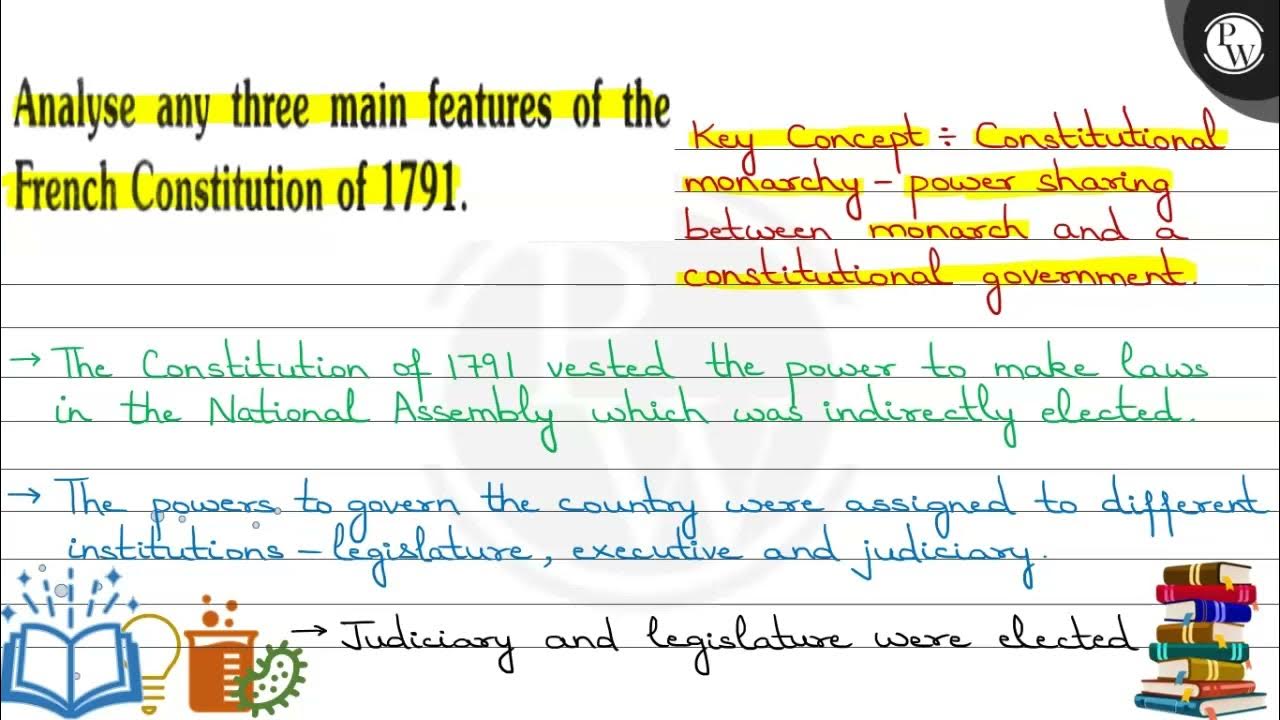 PW
Analyse any three main features of the
French Constitution of 1791.
Key Concept ÷ Constitutional
monarchy - power sharing
between monarch and a
constitutional government.
→ The Constitution of 1791 vested the power to make laws
in the National Assembly which was indirectly elected.
→ The powers to govern the country were assigned to different
institutions - legislature, executive and judiciary.
→ Judiciary and legislature were elected